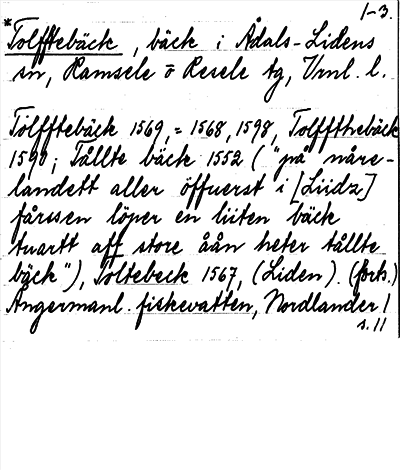 1-3.
*Tolfftebäck, bäck i Ådals-Lidens
sn, Ramsele o Resele tg, Vnl. l.
Tolfftebäck 1569, = 1568, 1598, Tolffthebäck
1590; Tållte bäck 1552 ("på nåre-
landett aller öffuerst i [Liidz]
fårssen löper en liiten bäck
tuartt aff store åån heter tållte
bäck"), Toltebeck 1567, (Liden). (forts.)
Ångermanl. fiskevatten, Nordlander 1
s. 11